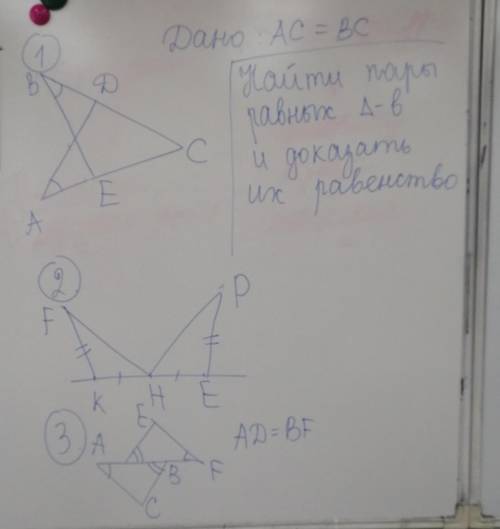 Дано: AC = BC
Найти пары
равных Δ-в
и доказать
их равенство
1
B D
C
A E
2
F P
K H E
3
E
A B F
C
AD = BF